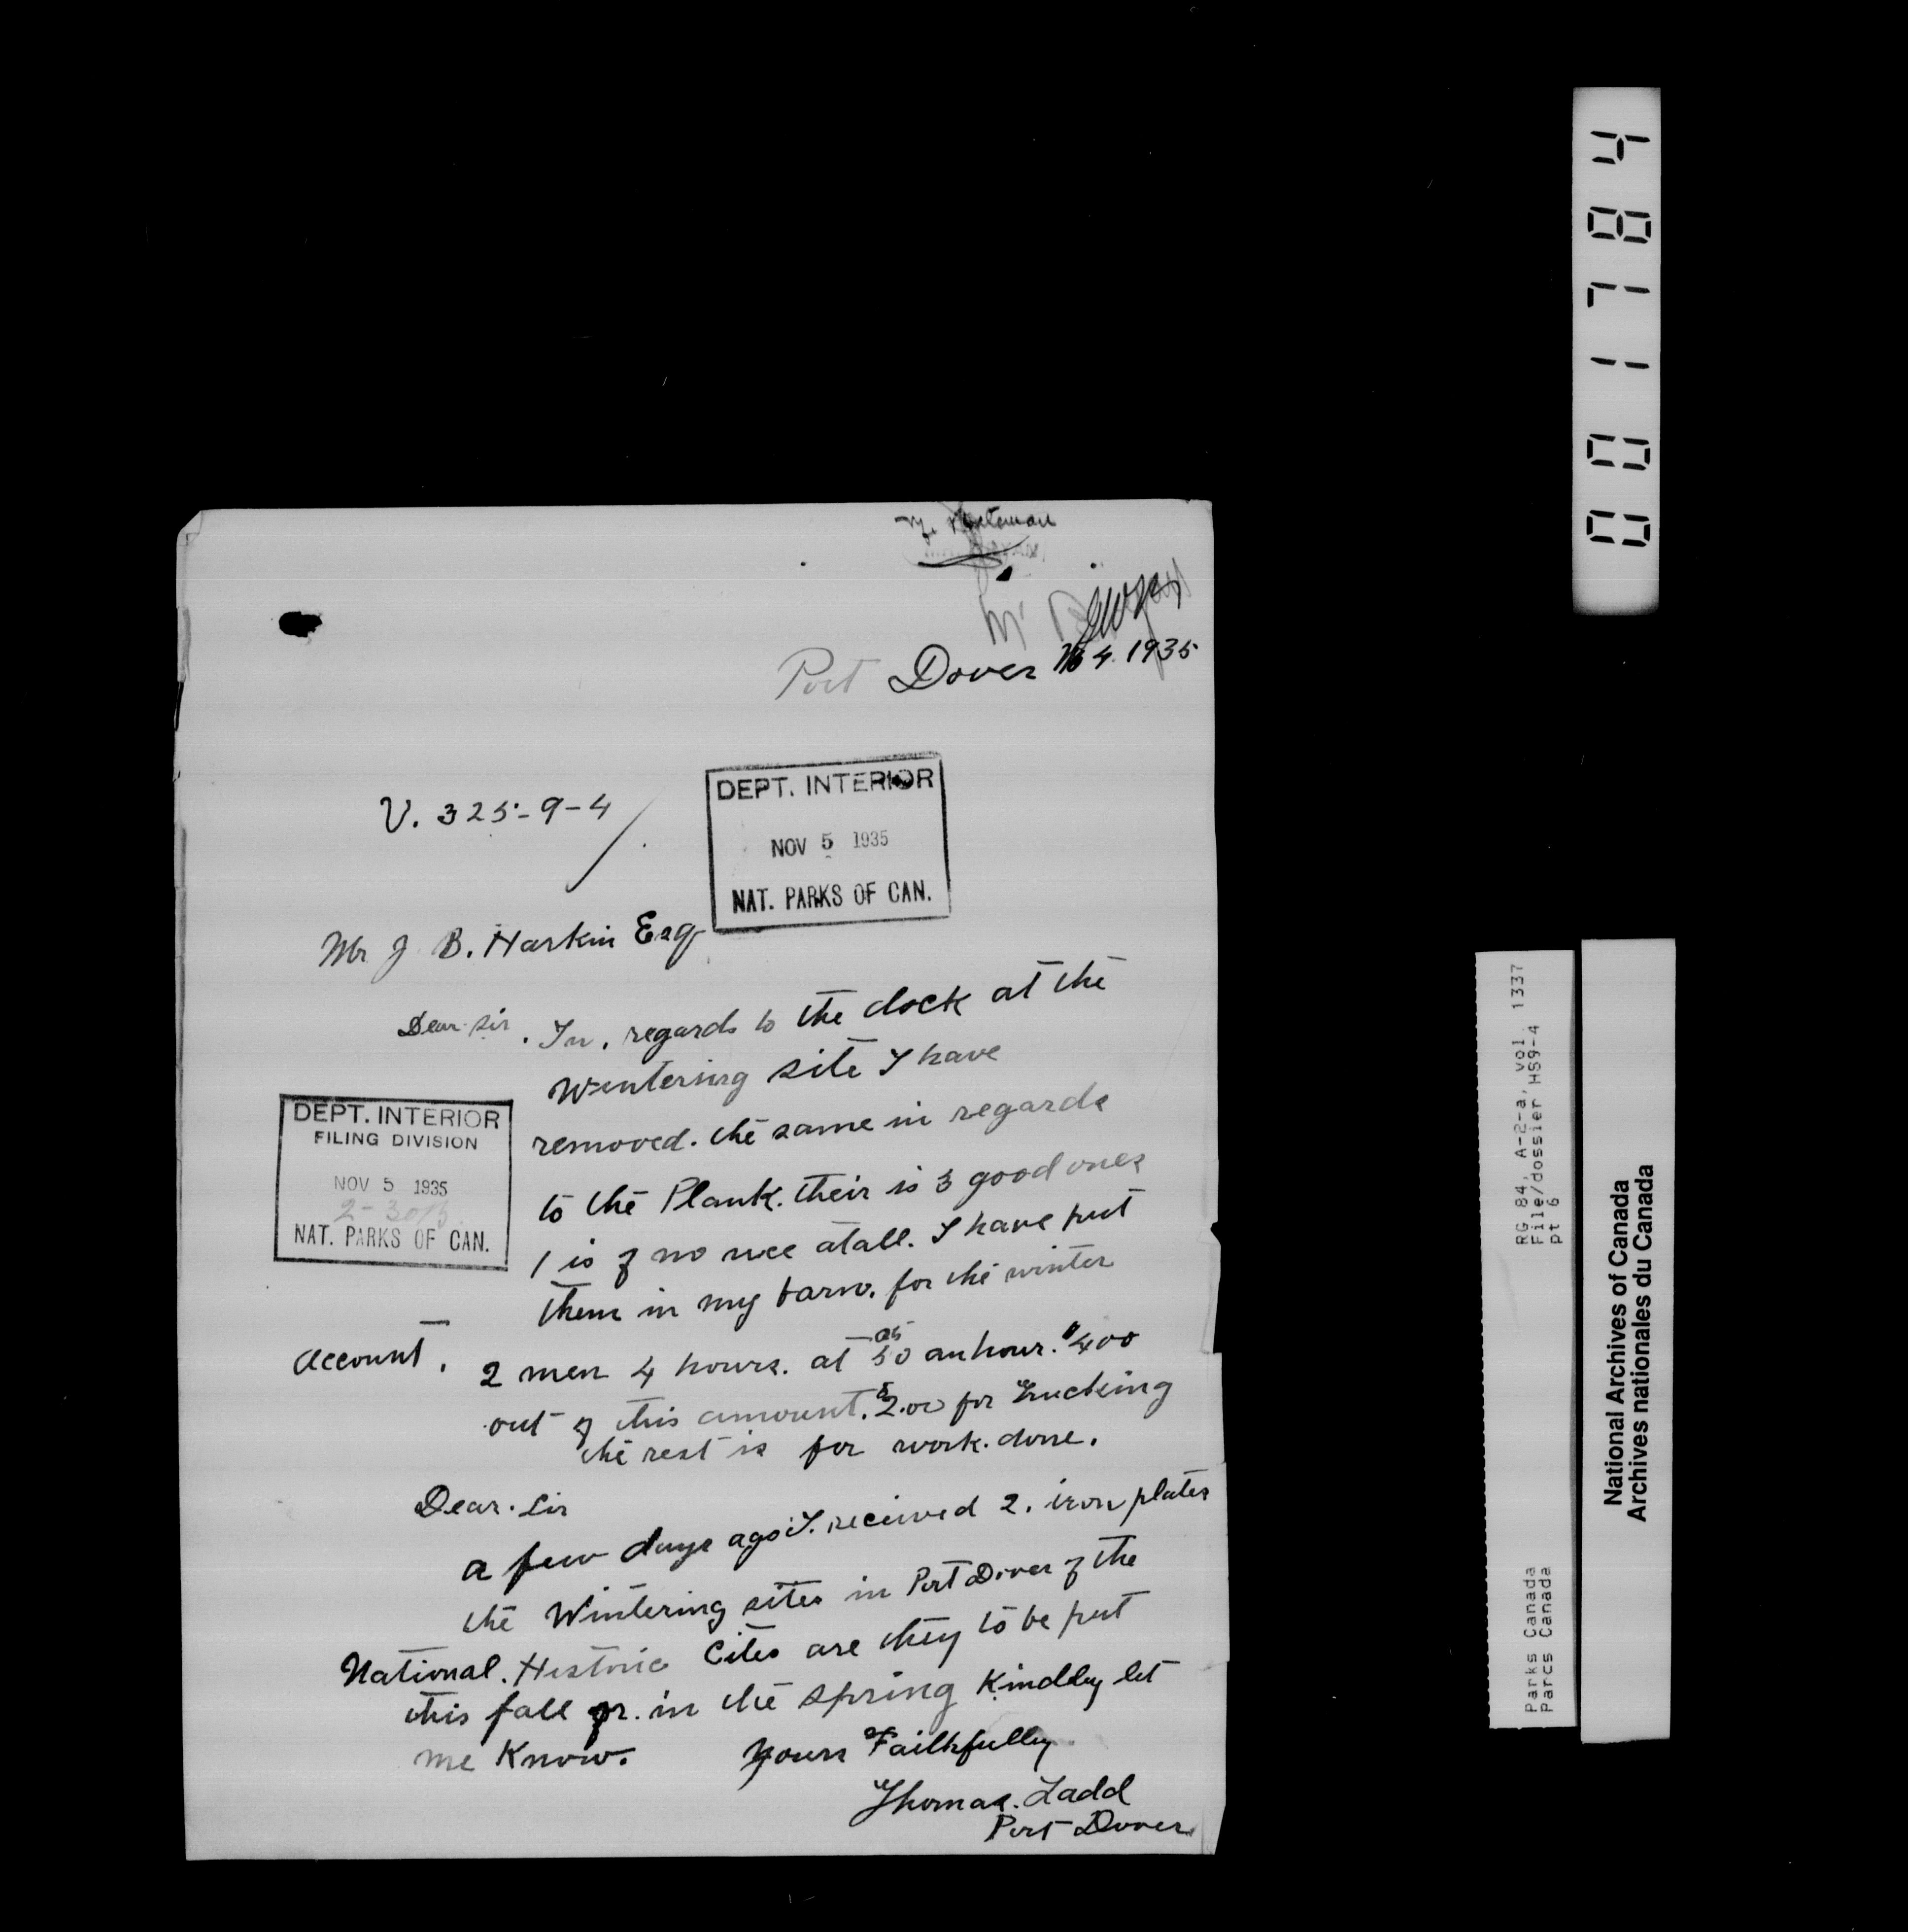 Port Dover Nov 4. 1935
V. 325-9-4
DEPT. INTERIOR
NOV 5 1935
NAT. PARKS OF CAN.
Mr J B. Harkin Esq
Dear Sir. In, regards to the dock at the
Wintering site I have
removed. the same in regards
to the Plank. their is 3 good ones
1 is of no use atall. I have put
them in my barn. for the winter
DEPT. INTERIOR
FILING DIVISION
NOV 5 1935
NAT. PARKS OF CAN.
Account. 2 men 4 hours. at 50 an hour. $4 00
out of this amount. $2.00 for Trucking
the rest is for work. done.
Dear. Sir
a few days ago I. received 2. iron plates
the Wintering sites in Port Dover of the
National. Historic Cites are they to be put
this fall or. in the spring Kindley let
me Know. Yours Faithfully
Thomas. Ladd
Port Dover
001784
RG 84, A-2-a, vol. 1337
File/dossier HS9-4
pt 6
Parks Canada
Parcs Canada
National Archives of Canada
Archives nationales du Canada